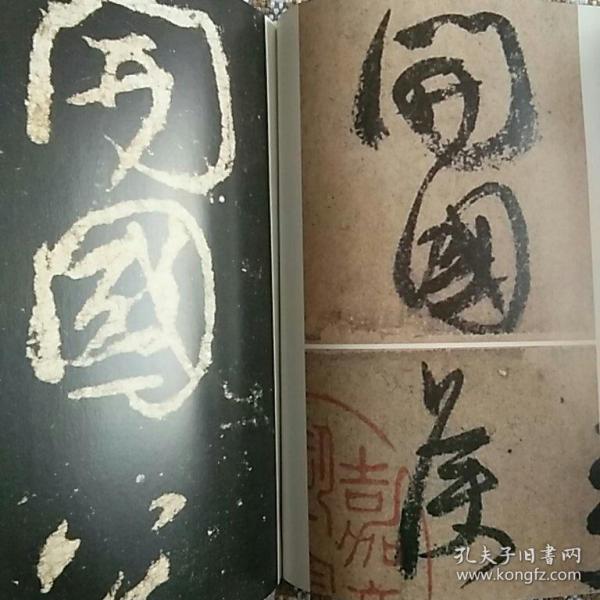 開國公
開國
侯
嘉
孔夫子旧书网
www.kongfz.com